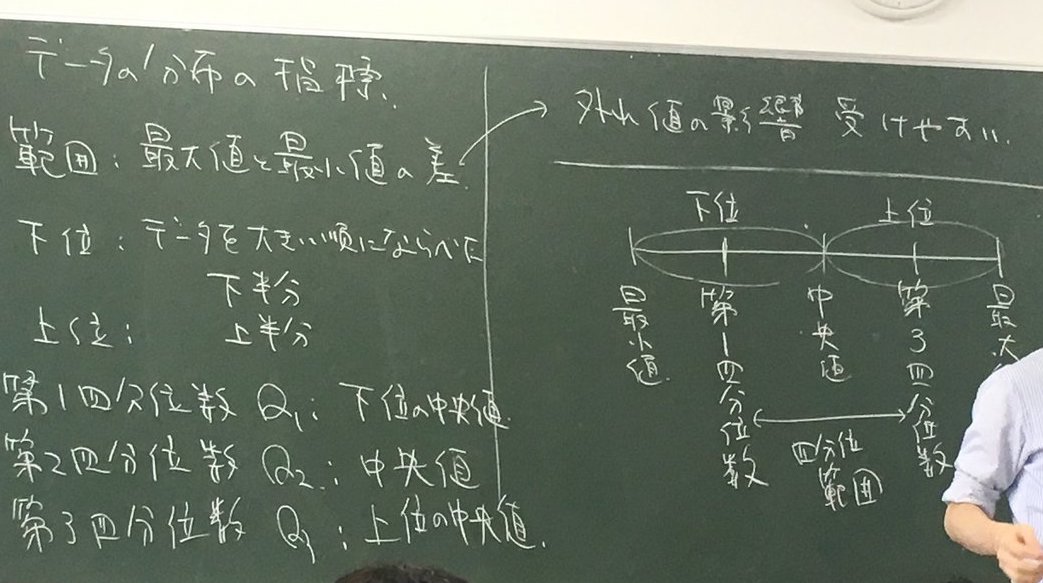 データの分布の指標
範囲:最大値と最小値の差
下位:データを大きい順にならべた
下半分
上位:上半分
第1四分位数 Q₁:下位の中央値
第2四分位数 Q₂:中央値
第3四分位数 Q₁:上位の中央値.
外れ値の影響 受けやすい.
下位 上位
最小値
第1四分位数
中央値
第3四分位数
最大
四分位
範囲